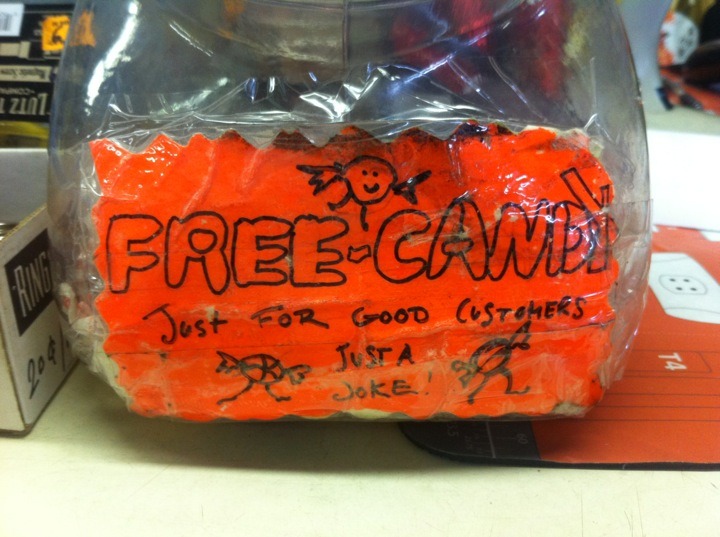 FREE-CANDY
JUST FOR GOOD CUSTOMERS
JUST A
JOKE!
RING
20¢
LUTZ
T4